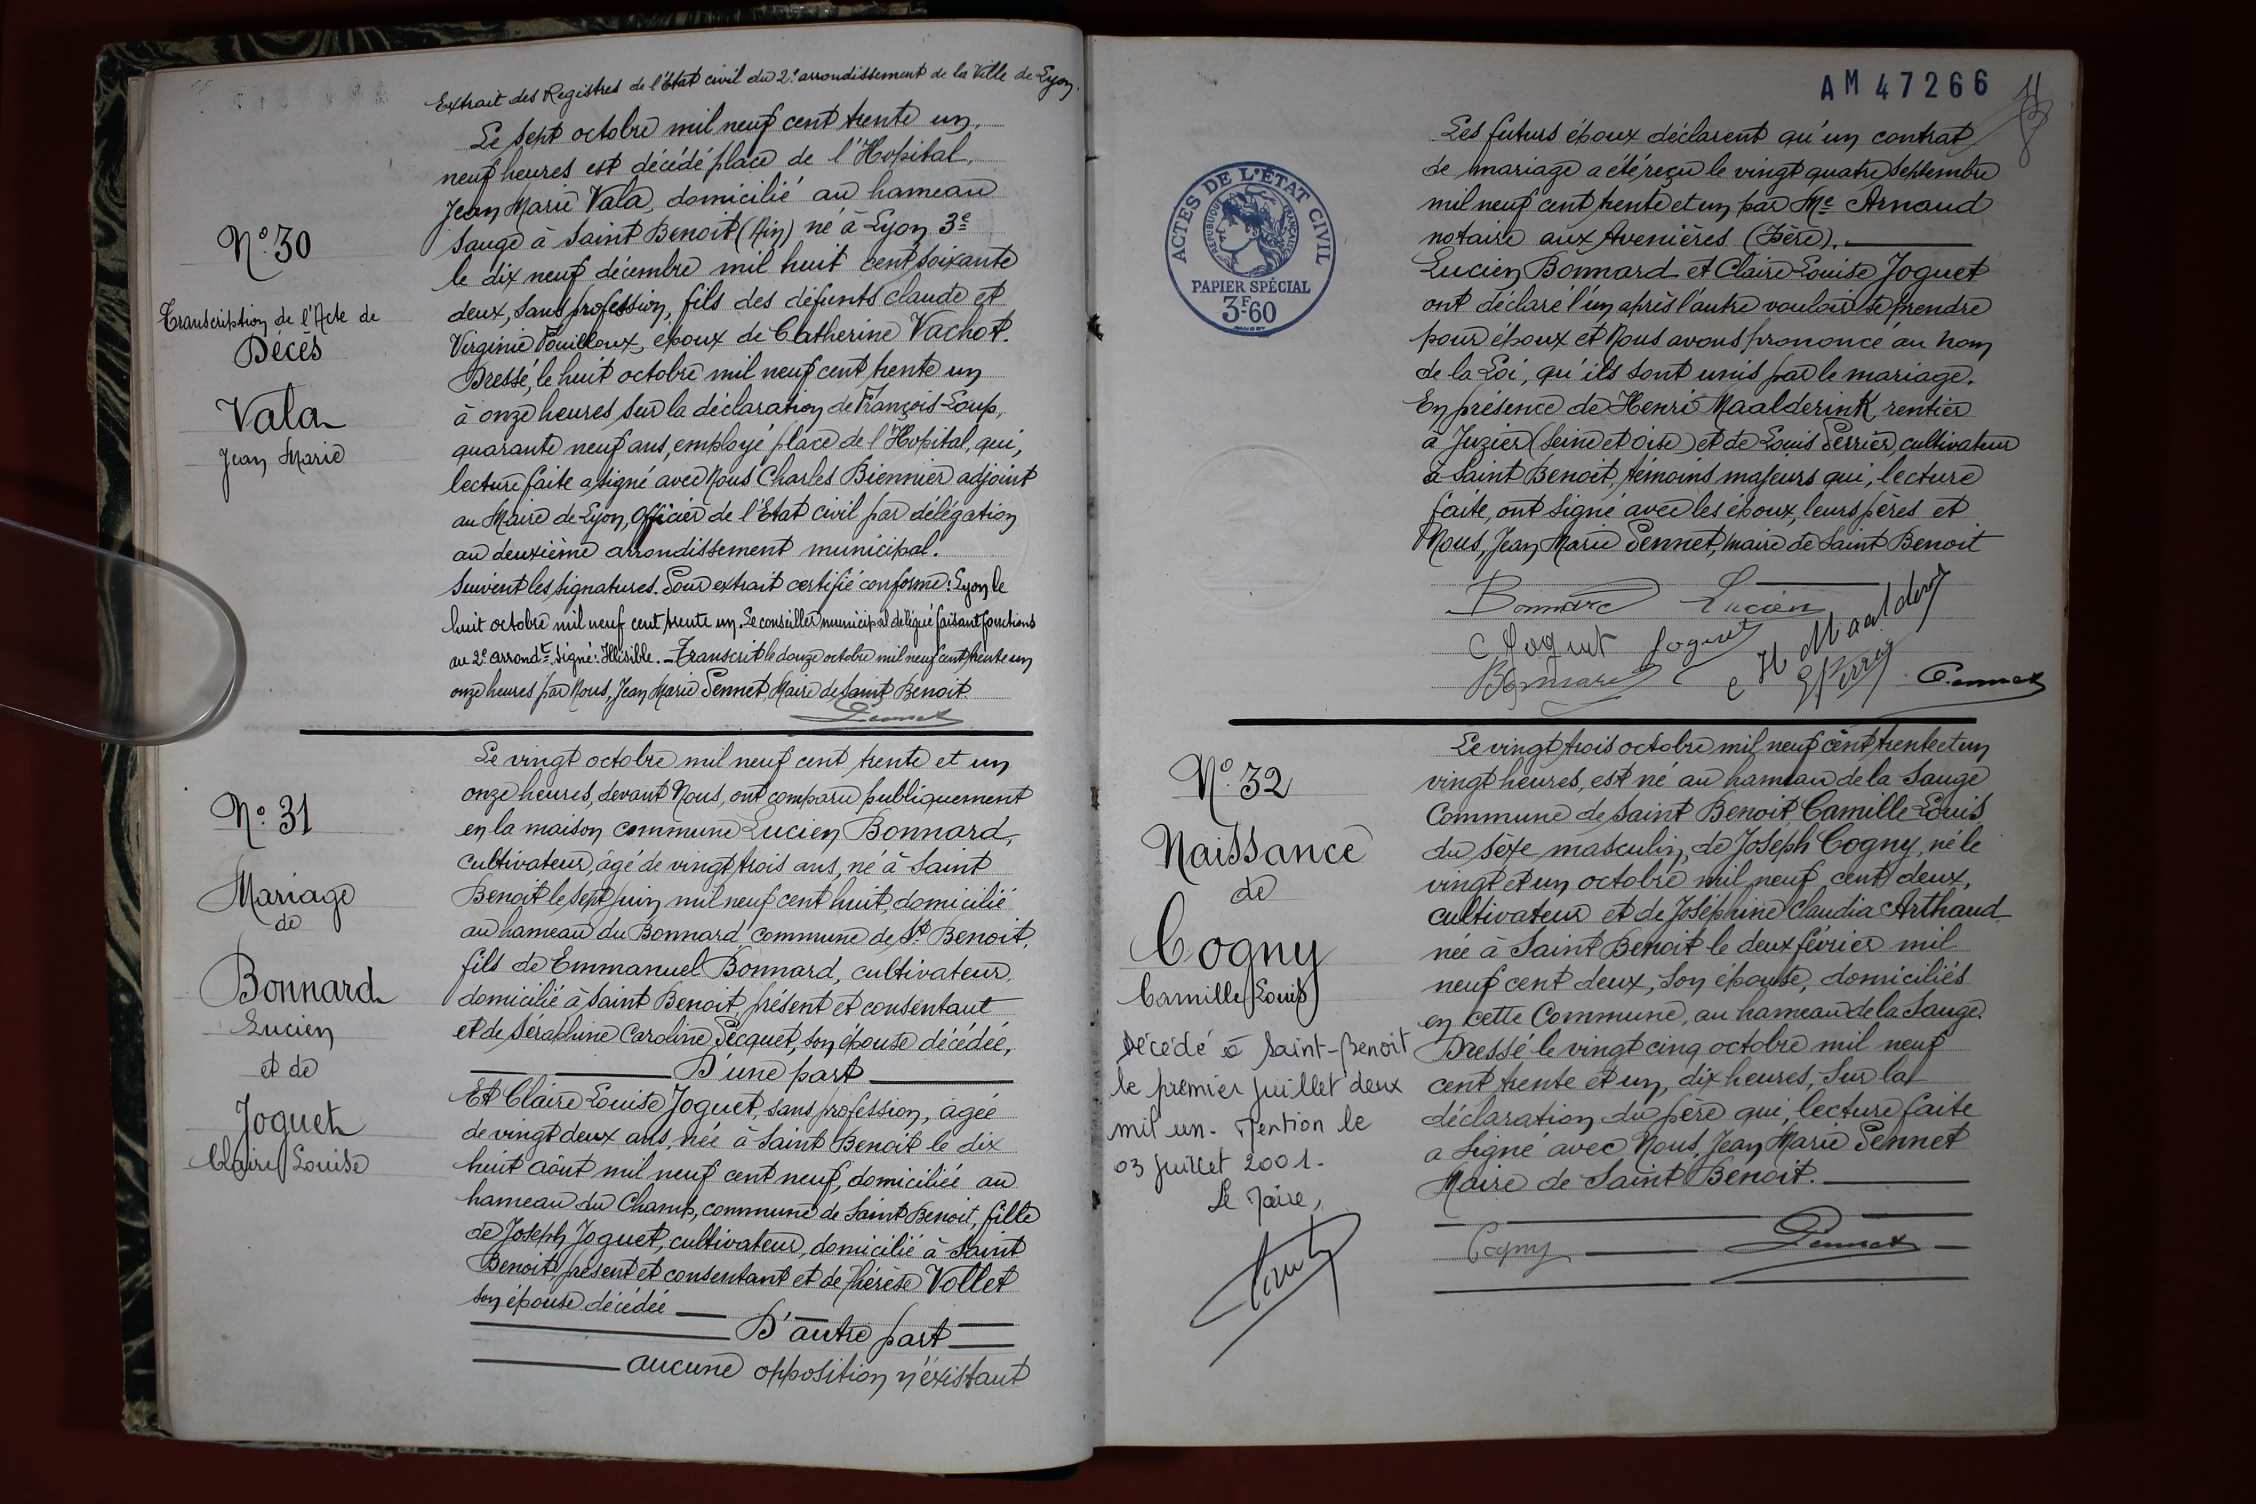 Extrait des Registres de l'Etat civil du 2e arrondissement de la Ville de Lyon.
N° 30
Transcription de l'Acte de
Décès
Vala
Jean Marie
Le sept octobre mil neuf cent trente un,
neuf heures est décédé place de l'Hopital,
Jean Marie Vala, domicilié au hameau
Sauge à Saint Benoit (Ain) né à Lyon 3e
le dix neuf décembre mil huit cent soixante
deux, sans profession, fils des défunts Claude et
Virginie Pouilloux, époux de Catherine Vachot.
Dressé, le huit octobre mil neuf cent trente un
à onze heures, sur la déclaration de François Loup,
quarante neuf ans, employé place de l'Hopital, qui,
lecture faite a signé avec Nous Charles Biennier adjoint
au Maire de Lyon, Officier de l'Etat civil par délégation
au deuxième arrondissement municipal.
Suivent les signatures. Pour extrait certifié conforme: Lyon le
huit octobre mil neuf cent trente un. Le conseiller municipal délégué faisant fonctions
au 2e arrondt. Signé: Illisible. - Transcrit le douze octobre mil neuf cent trente un
onze heures par Nous, Jean Marie Pennet, Maire de Saint Benoit.
Pennet
N° 31
Mariage
de
Bonnard
Lucien
et de
Joguet
Claire Louise
Le vingt octobre mil neuf cent trente et un
onze heures, devant Nous, ont comparu publiquement
en la maison commune Lucien Bonnard,
cultivateur, âgé de vingt trois ans, né à Saint
Benoit le sept juin mil neuf cent huit, domicilié
au hameau du Bonnard, commune de St Benoit,
fils de Emmanuel Bonnard, cultivateur
domicilié à Saint Benoit, présent et consentant
et de Séraphine Caroline Pecquet, son épouse décédée,
D'une part
Et Claire Louise Joguet, sans profession, âgée
de vingt deux ans, née à Saint Benoit le dix
huit août mil neuf cent neuf, domiciliée au
hameau du Champ, commune de Saint Benoit, fille
de Joseph Joguet, cultivateur, domicilié à Saint
Benoit, présent et consentant et de Thérèse Vollet
son épouse décédée
D'autre part
aucune opposition n'existant
AM 47266
ACTES DE L'ÉTAT CIVIL
RÉPUBLIQUE FRANÇAISE
PAPIER SPÉCIAL
3F60
Les futurs époux déclarent qu'un contrat
de mariage a été reçu le vingt quatre septembre
mil neuf cent trente et un par Me Arnaud
notaire aux Avenières (Isère).
Lucien Bonnard et Claire Louise Joguet
ont déclaré l'un après l'autre vouloir se prendre
pour époux et Nous avons prononcé au nom
de la Loi, qu'ils sont unis par le mariage.
En présence de Henri Maalderink, rentier
à Juzier (Seine et Oise) et de Louis Perrier, cultivateur
à Saint Benoit, témoins majeurs qui, lecture
faite, ont signé avec les époux, leurs pères et
Nous, Jean Marie Pennet, maire de Saint Benoit
Bonnard Lucien
C Joguet Joguet
H Maalder
Bonnard
Pennet
N° 32
Naissance
de
Cogny
Camille Louis
Décédé à Saint-Benoit
le premier juillet deux
mil un. Mention le
03 juillet 2001.
Le Maire,
Le vingt trois octobre mil neuf cent trente et un
vingt heures, est né au hameau de la Sauge
Commune de Saint Benoit Camille Louis
du sexe masculin, de Joseph Cogny, né le
vingt et un octobre mil neuf cent deux,
cultivateur et de Joséphine Claudia Arthaud
née à Saint Benoit le deux février mil
neuf cent deux, son épouse, domiciliés
en cette Commune, au hameau de la Sauge.
Dressé le vingt cinq octobre mil neuf
cent trente et un, dix heures, sur la
déclaration du père qui, lecture faite
a signé avec Nous, Jean Marie Pennet
Maire de Saint Benoit.
Cogny Pennet